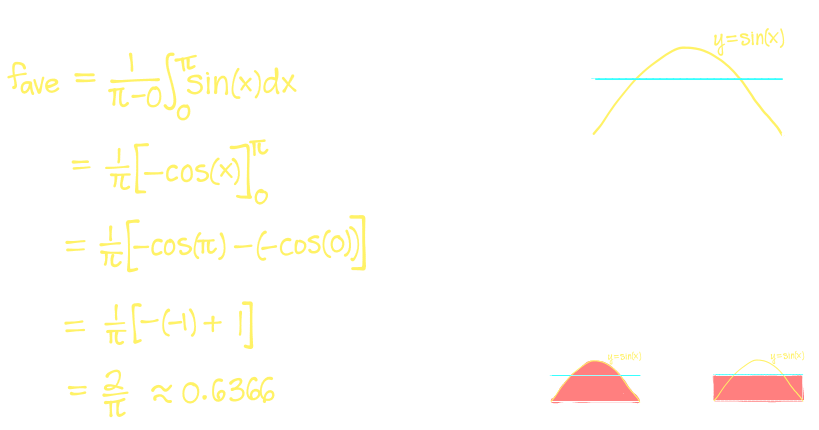 f_ave = 1/(π-0) ∫_0^π sin(x)dx
= 1/π [-cos(x)]_0^π
= 1/π [-cos(π) - (-cos(0))]
= 1/π [-(-1) + 1]
= 2/π ≈ 0.6366
y=sin(x)
y=sin(x)
y=sin(x)